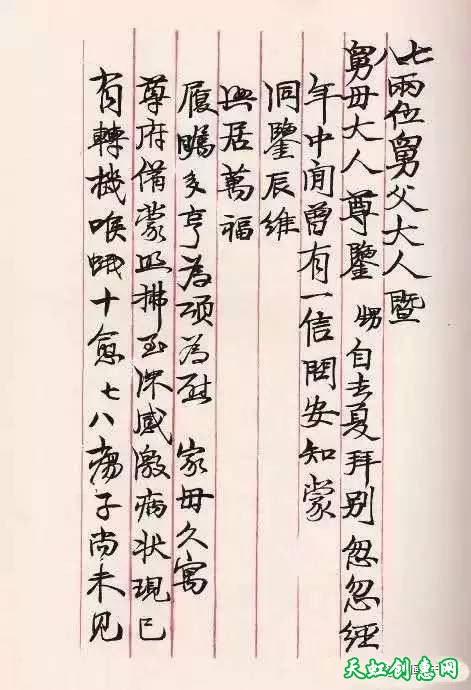 七八兩位舅父大人暨
舅母大人尊鑒 甥自去夏拜別忽忽經
年中間曾有一信問安知蒙
洞鑒辰維
興居萬福
履祉多亨為頌為慰 家母久寓
尊府備蒙照拂至深感激病狀現已
有轉機喉蛾十愈七八瘍子尚未見
天虹创意网